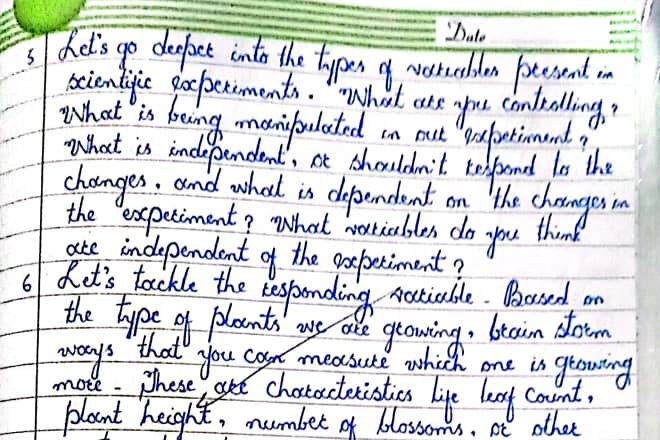 Date
5 Let's go deeper into the types of variables present in
scientific experiments. What are you controlling?
What is being manipulated in our experiment?
What is independent, or shouldn't respond to the
changes, and what is dependent on the changes in
the experiment? What variables do you think
are independent of the experiment?
6 Let's tackle the responding variable - Based on
the type of plants we are growing, brain storm
ways that you can measure which one is growing
more - These are characteristics like leaf count,
plant height, number of blossoms, or other